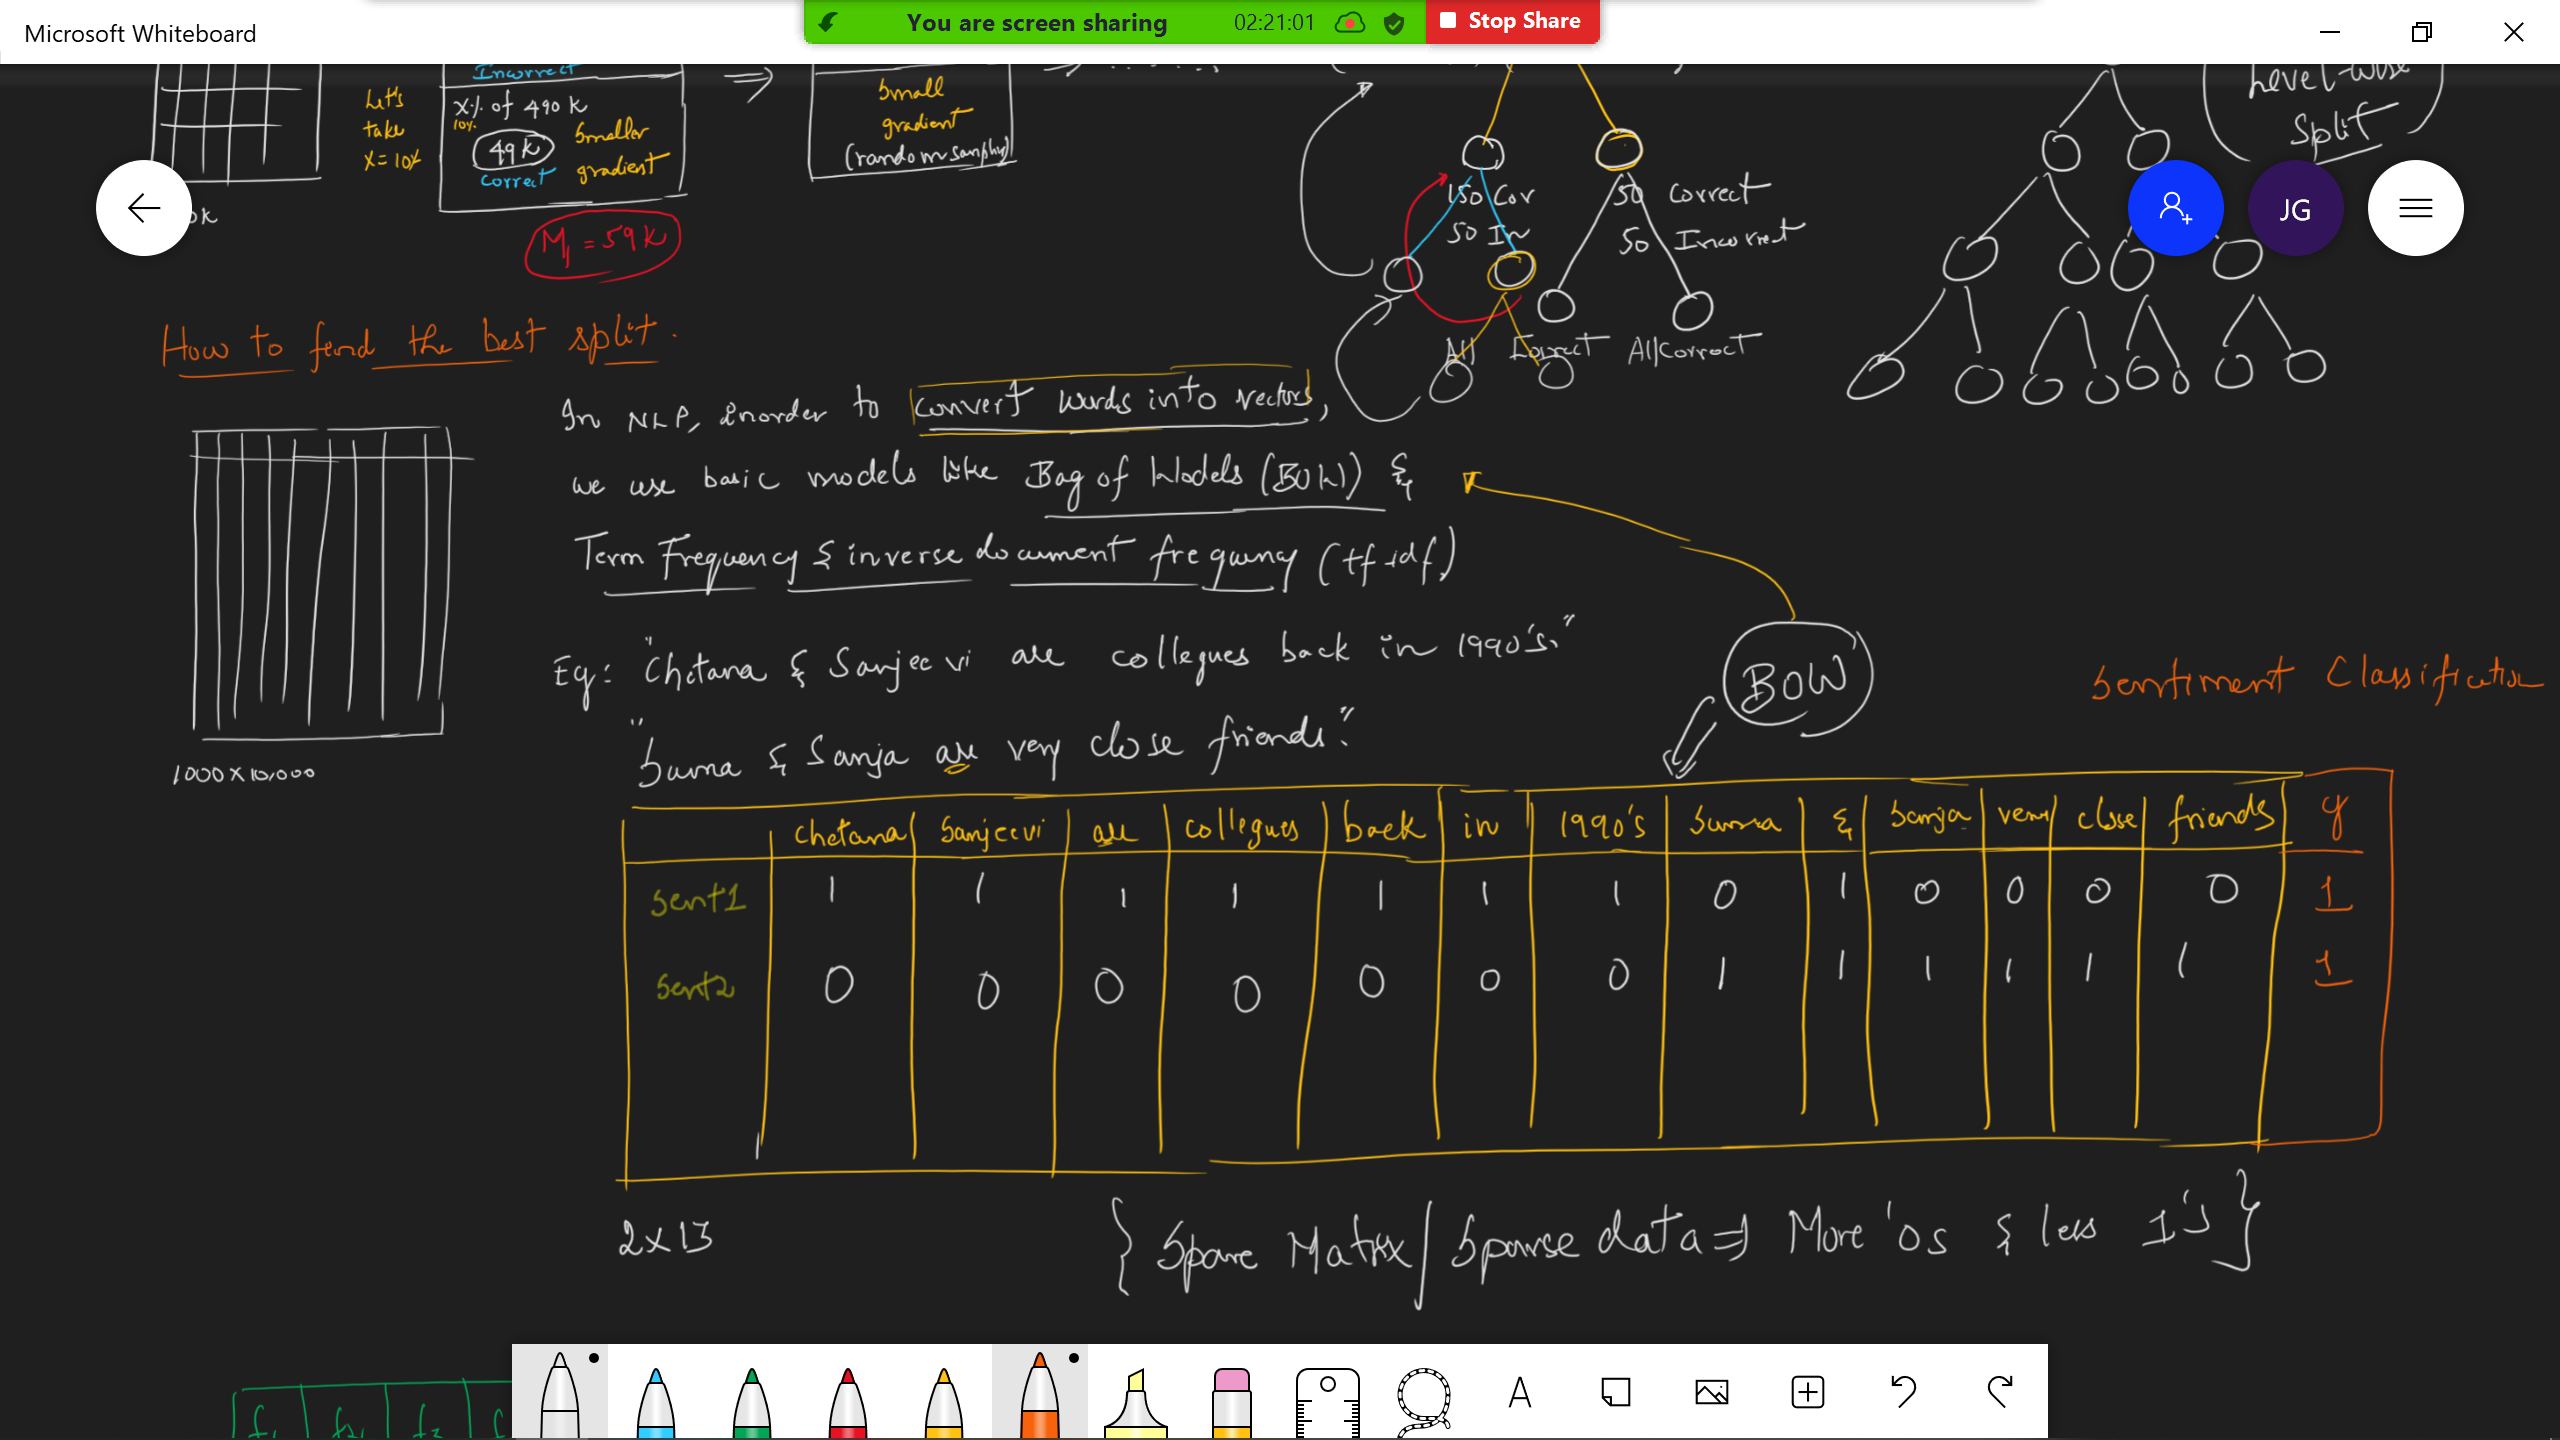 Microsoft Whiteboard
You are screen sharing 02:21:01 Stop Share
Incorrect
x% of 490 K
10%
49K
correct
Smaller
gradient
Let's
take
x=10%
0K
M1 = 59K
Small
gradient
(random sampling)
150 Cor
50 In
50 Correct
50 Incorrect
All Correct
All Correct
Level-wise
Split
JG
How to find the best split.
1000 x 10,000
In NLP, inorder to convert words into vectors,
we use basic models like Bag of Wodels (BOW) &
Term Frequency & inverse document frequency (tf-idf)
Eg: "Chetana & Sanjeevi are collegues back in 1990's."
"Suma & Sanja are very close friends."
BOW
Sentiment Classification
chetana Sanjeevi are collegues back in 1990's Suma & Sanja very close friends y
Sent1 1 1 1 1 1 1 1 0 1 0 0 0 0 1
Sent2 0 0 0 0 0 0 0 1 1 1 1 1 1 1
2x13
{ Sparse Matrix / Sparse data => More '0s & less 1's }
f1 f2 f3 f